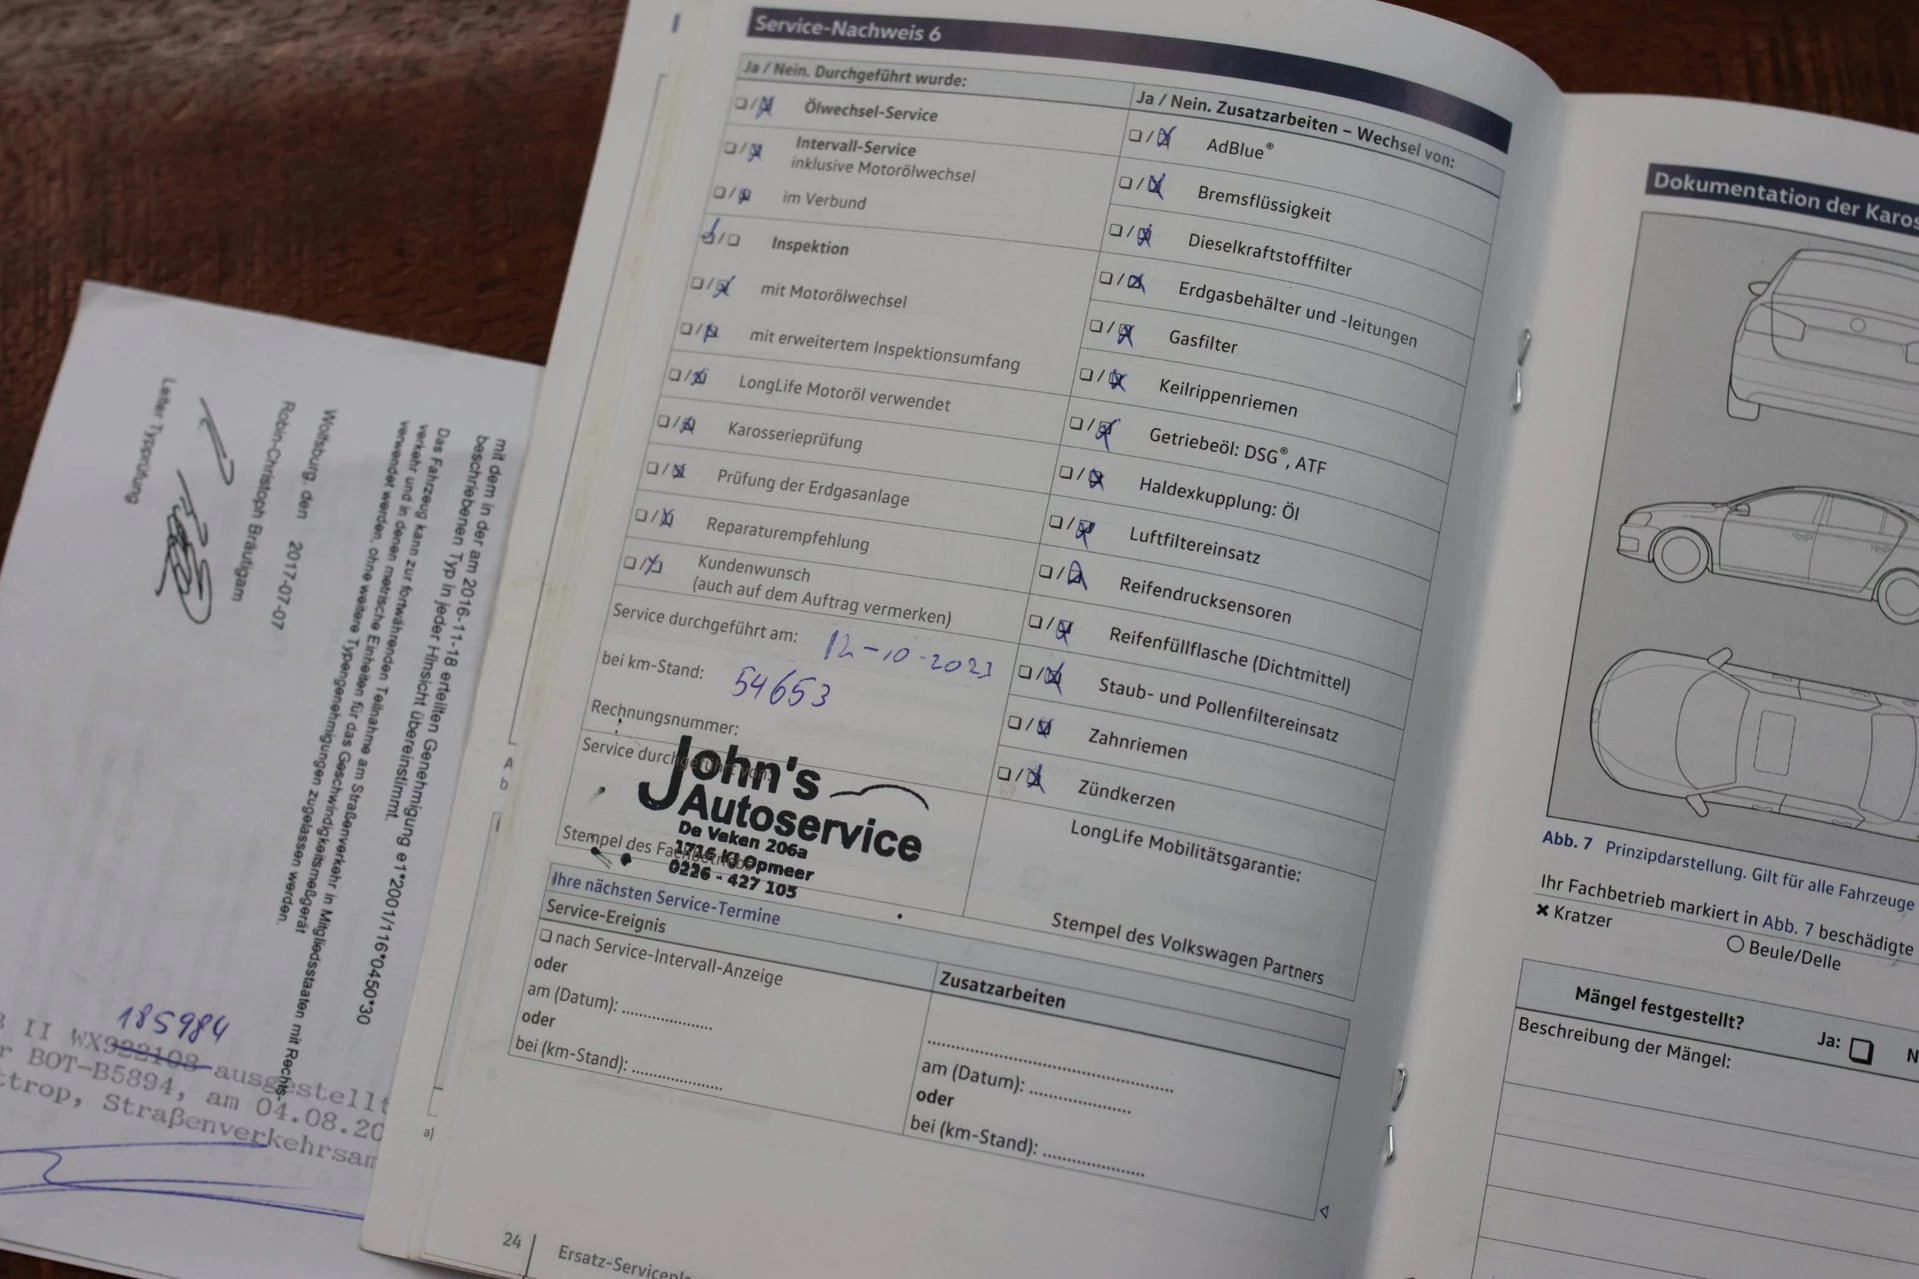 Service-Nachweis 6
Ja / Nein. Durchgeführt wurde:
Ölwechsel-Service
Intervall-Service
inklusive Motorölwechsel
im Verbund
Inspektion
mit Motorölwechsel
mit erweitertem Inspektionsumfang
LongLife Motoröl verwendet
Karosserieprüfung
Prüfung der Erdgasanlage
Reparaturempfehlung
Kundenwunsch
(auch auf dem Auftrag vermerken)
Service durchgeführt am: 12-10-2023
bei km-Stand: 54653
Rechnungsnummer:
Service durchgeführt von:
John's
Autoservice
De Veken 206a
1716 KJ Opmeer
0226 - 427 105
Stempel des Fachbetriebs
Ja / Nein. Zusatzarbeiten – Wechsel von:
AdBlue®
Bremsflüssigkeit
Dieselkraftstofffilter
Erdgasbehälter und -leitungen
Gasfilter
Keilrippenriemen
Getriebeöl: DSG®, ATF
Haldexkupplung: Öl
Luftfiltereinsatz
Reifendrucksensoren
Reifenfüllflasche (Dichtmittel)
Staub- und Pollenfiltereinsatz
Zahnriemen
Zündkerzen
LongLife Mobilitätsgarantie:
Stempel des Volkswagen Partners
Ihre nächsten Service-Termine
Service-Ereignis
nach Service-Intervall-Anzeige
oder
am (Datum): ....................
oder
bei (km-Stand): ....................
Zusatzarbeiten
am (Datum): ....................
oder
bei (km-Stand): ....................
24
Ersatz-Servicepla
Dokumentation der Karos
Abb. 7 Prinzipdarstellung. Gilt für alle Fahrzeuge
Ihr Fachbetrieb markiert in Abb. 7 beschädigte
Kratzer
Beule/Delle
Mängel festgestellt?
Ja:
N
Beschreibung der Mängel:
mit dem in der am 2016-11-18 erteilten Genehmigung e1*2001/116*0450*30
beschriebenen Typ in jeder Hinsicht übereinstimmt.
Das Fahrzeug kann zur fortwährenden Teilnahme am Straßenverkehr in Mitgliedsstaaten mit Rechts-
verkehr und in denen metrische Einheiten für das Geschwindigkeitsmeßgerät
verwendet werden, ohne weitere Typengenehmigungen zugelassen werden.
Wolfsburg, den 2017-07-07
Robin-Christoph Bräutigam
Leiter Typprüfung
185984
II WX922108 ausgestellt
r BOT-B5894, am 04.08.20
ttrop, Straßenverkehrsam
A
b
a)